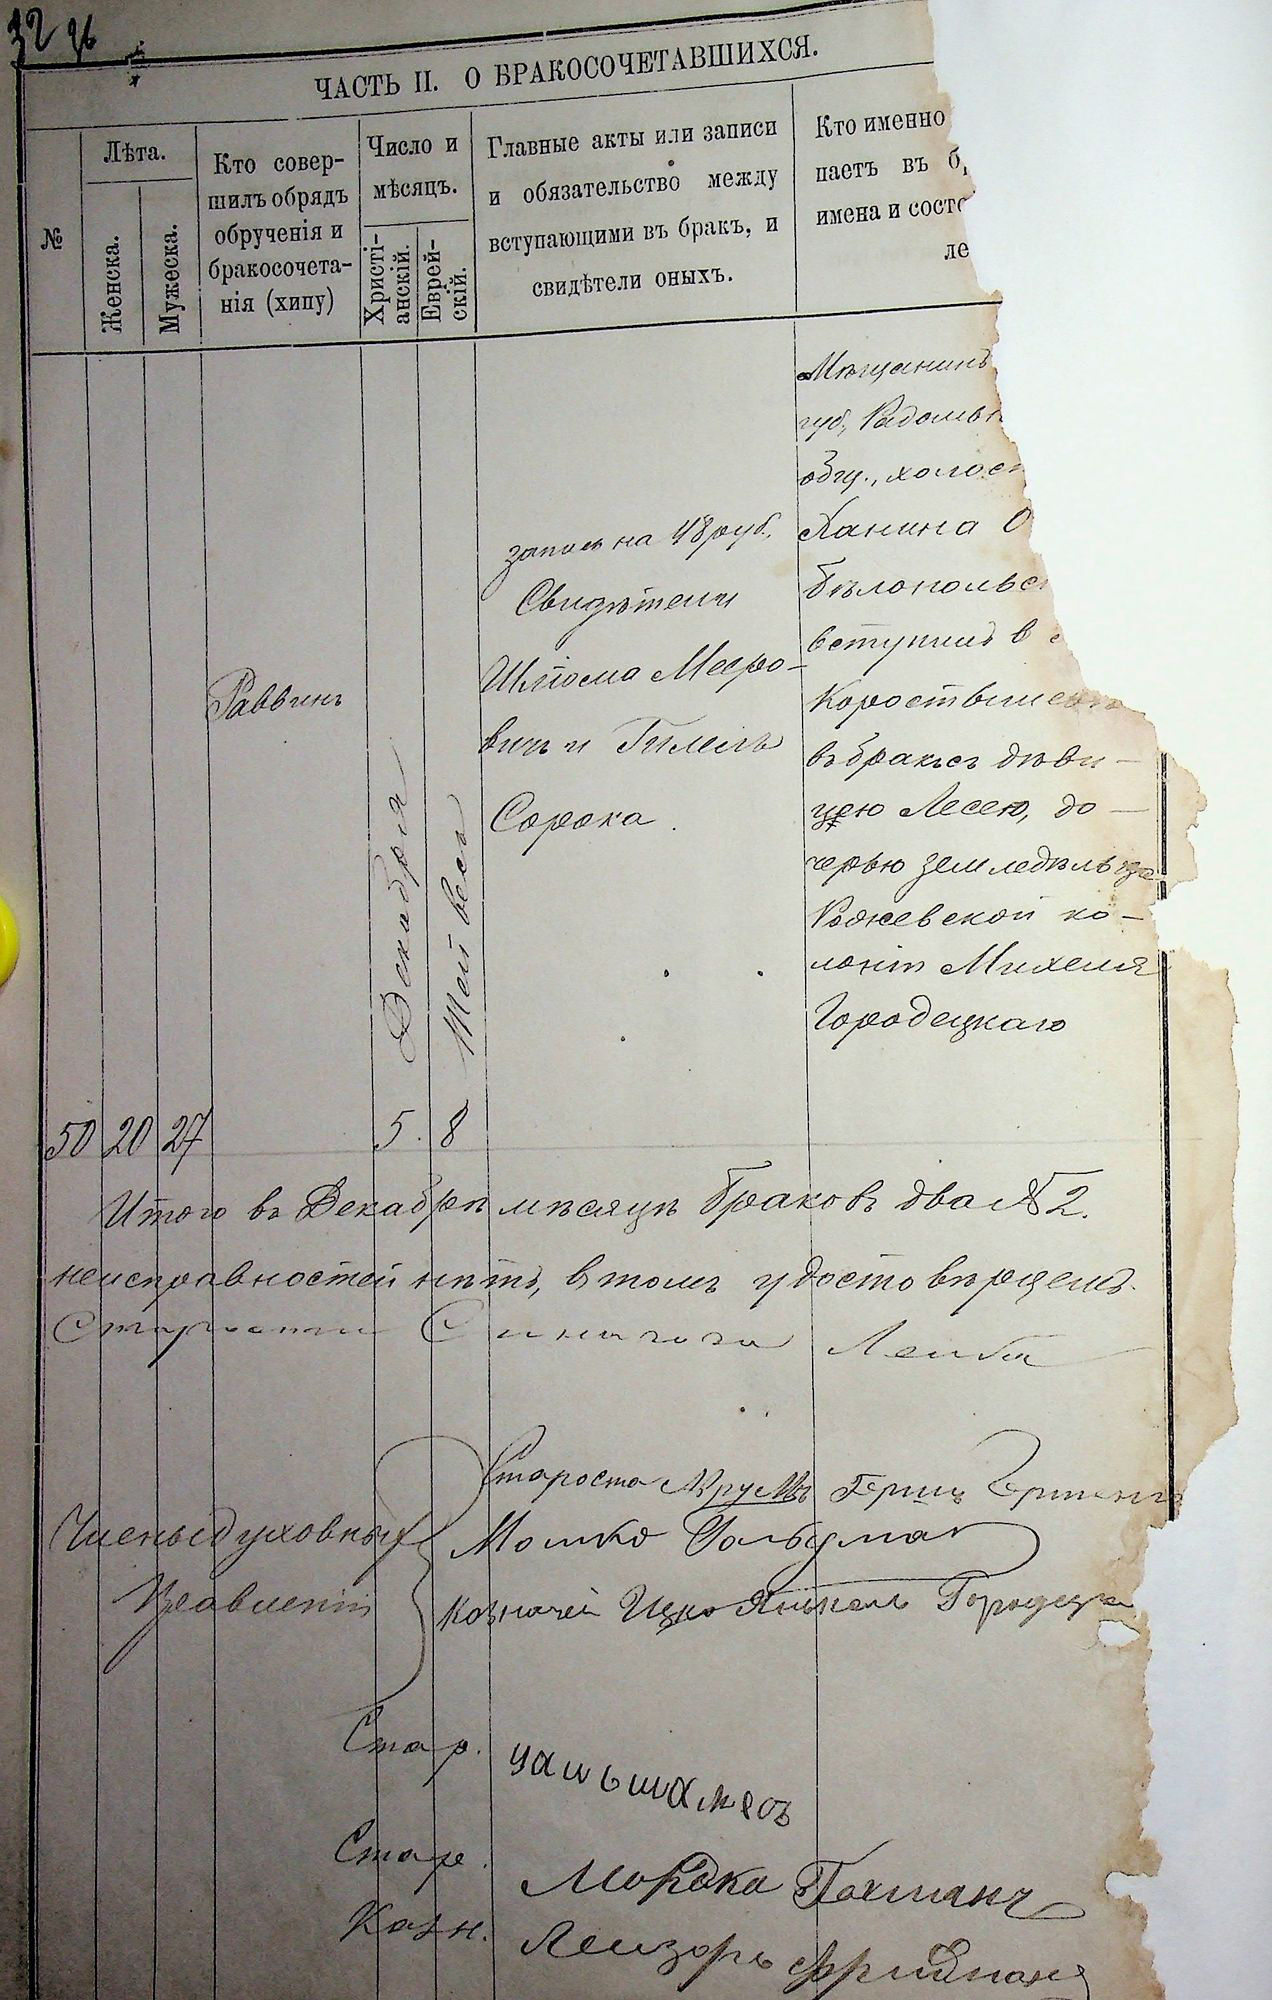 32 96
ЧАСТЬ II. О БРАКОСОЧЕТАВШИХСЯ.
№
Лѣта.
Женска.
Мужеска.
Кто совер-
шилъ обрядъ
обрученія и
бракосочета-
нія (хипу)
Число и
мѣсяцъ.
Христі-
анскій.
Еврей-
скій.
Главные акты или записи
и обязательство между
вступающими въ бракъ, и
свидѣтели оныхъ.
Кто именно
паетъ въ б
имена и сост
ле
50
20
27
Раввинъ
5
Декабря
8
Тейвесъ
запись на 48 руб.,
Свидѣтели
Шлiома Мееро-
вичъ и Гилель
Сорока
Мѣщанинъ
губ., Радомы
общ., холос
Ханина О
бѣлопольс
вступилъ в
Коростышев
въ бракъ съ дѣви-
цею Лесею, до-
черью земледѣльца
Рожевской ко-
лоніи Михеля
Городецкаго
Итого въ Декабрѣ мѣсяцѣ браковъ два № 2.
неисправностей нѣтъ, в томъ удостовѣряемъ.
Синагога Лейба
Староста Герш
Члены духовныхъ Мошко Гольдман
Правленій Казначей Ицко Янкель Городецк
Стар.
Стар. Мордко Гохманъ
Казн. Лейзоръ Фридман